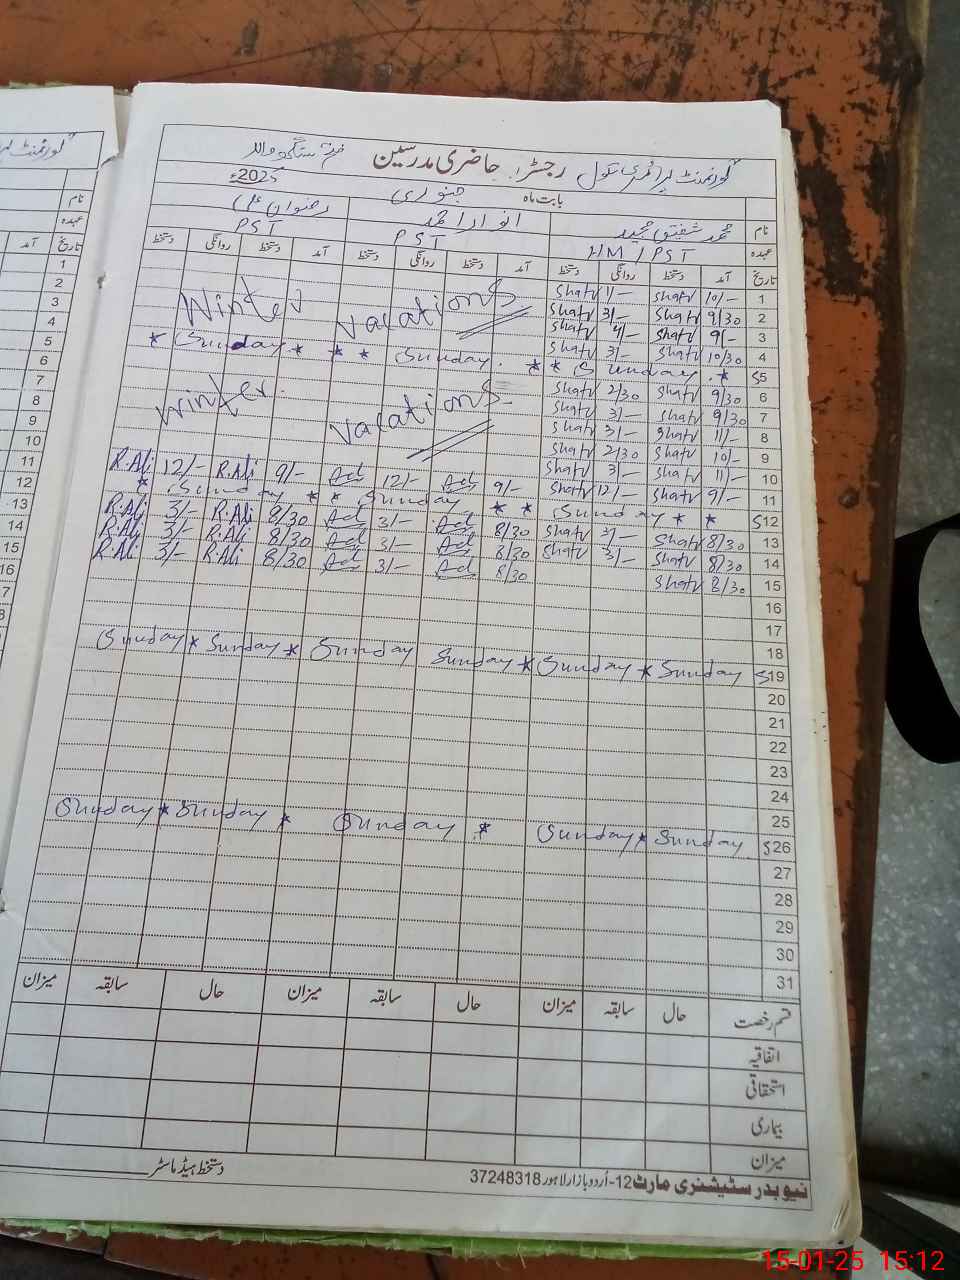 گورنمنٹ پرائمری سکول رجسٹر حاضری مدرسین
بابت ماہ جنوری 2025ء
نام محمد شفیق مجید انوار احمد رضوان علی
عہدہ HM / PST PST PST
تاریخ آمد دستخط روانگی دستخط آمد دستخط روانگی دستخط آمد دستخط روانگی دستخط
1 10/- Shafi 11/- Shafi
2 9/30 Shafi 3/- Shafi Vacations Winter
3 9/- Shafi 4/- Shafi
4 10/30 Shafi 3/- Shafi
S5 * Sunday * * Sunday * * * Sunday *
6 9/30 Shafi 2/30 Shafi
7 9/30 Shafi 3/- Shafi
8 11/- Shafi 3/- Shafi Vacations Winter
9 10/- Shafi 2/30 Shafi
10 11/- Shafi 3/- Shafi
11 9/- Shafi 12/- Shafi 9/- Ad 12/- Ad 9/- R.Ali 12/- R.Ali
S12 * * Sunday * * Sunday * * Sunday *
13 8/30 Shafi 3/- Shafi 8/30 Ad 3/- Ad 8/30 R.Ali 3/- R.Ali
14 8/30 Shafi 3/- Shafi 8/30 Ad 3/- Ad 8/30 R.Ali 3/- R.Ali
15 8/30 Shafi 8/30 Ad 3/- Ad 8/30 R.Ali 3/- R.Ali
16
17
18
S19 Sunday * Sunday * Sunday Sunday * Sunday * Sunday
20
21
22
23
24
25
S26 Sunday * Sunday * Sunday * Sunday * Sunday
27
28
29
30
31
قسم رخصت حال سابقہ میزان حال سابقہ میزان حال سابقہ میزان
اتفاقیہ
استحقاقی
بیماری
میزان
دستخط ہیڈ ماسٹر
نیو بدر سٹیشنری مارٹ 12-اُردو بازار لاہور 37248318
15-01-25 15:12